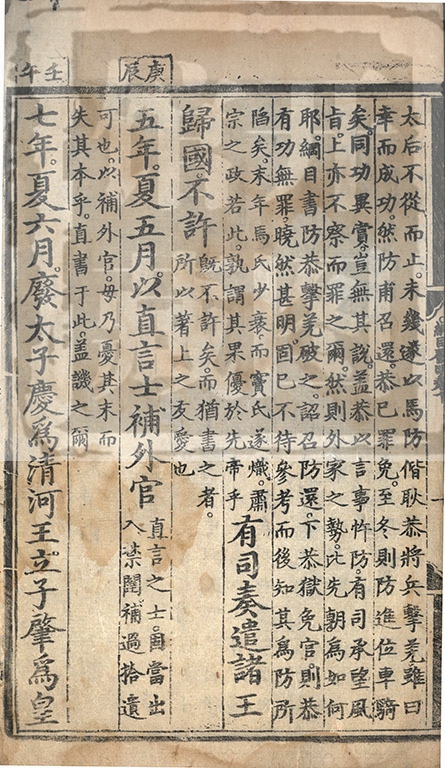 太后不從而止。未幾遂以馬防偕耿恭將兵擊羌雖曰
幸而成功。然防甫召還。恭已罪免。至冬則防進位車騎
矣。同功異賞。豈無其說。盖恭以言事忤防。有司承望風
旨。上亦不察而罪之爾。然則外家之勢。比先朝為如何
耶。綱目書防恭擊羌破之。詔召防還。下恭獄免官。則恭
有功無罪。曉然甚明。固已不待參考而後知其為防所
陷矣。末年馬氏少衰。而竇氏遂熾。肅
宗之政若此。孰謂其果優於先帝乎
有司奏遣諸王
歸國不許
旣不許矣。而猶書之者。
所以著上之友愛也
庚辰
五年。夏五月。以直言士補外官
直言之士。固當出
入禁闥。補過拾遺
可也。以補外官。毋乃憂其末而
失其本乎。直書于此。盖譏之爾
壬午
七年。夏六月。廢太子慶為清河王。立子肇為皇